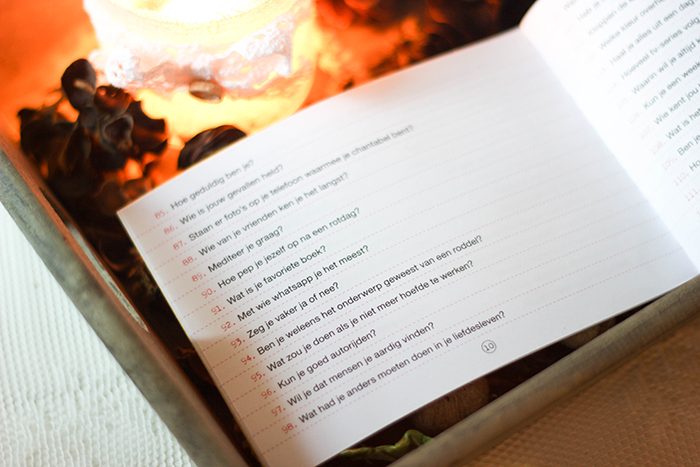 85. Hoe geduldig ben je?
86. Wie is jouw gevallen held?
87. Staan er foto's op je telefoon waarmee je chantabel bent?
88. Wie van je vrienden ken je het langst?
89. Mediteer je graag?
90. Hoe pep je jezelf op na een rotdag?
91. Wat is je favoriete boek?
92. Met wie whatsapp je het meest?
93. Zeg je vaker ja of nee?
94. Ben je weleens het onderwerp geweest van een roddel?
95. Wat zou je doen als je niet meer hoefde te werken?
96. Kun je goed autorijden?
97. Wil je dat mensen je aardig vinden?
98. Wat had je anders moeten doen in je liefdesleven?
10
Welke kleur
Haal je alles uit een
Hoeveel tv-series
Waarin wil je altijd
Kun je een week
Wie kent jou
Wat is het
Ben je